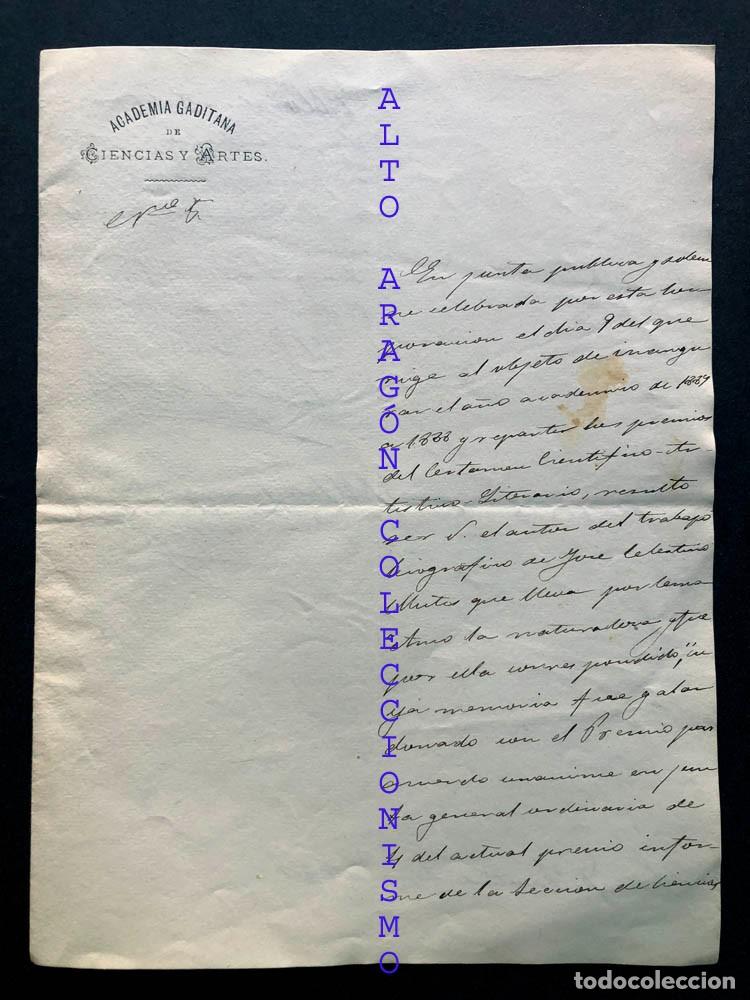 ACADEMIA GADITANA
DE
CIENCIAS Y ARTES.
En junta publica y solem
ne celebrada por esta Cor
poracion el dia 9 del que
rige al objeto de inaugu
rar el año academico de 1887
a 1888 y repartir los premios
del Certamen Cientifico-Ar
tistico-Literario, resultó
ser V. el autor del trabajo
biografico de Jose Celestino
Mutis que lleva por lema
Amó la naturaleza y fue
por ella correspondido," cu
ya memoria fue galar
donado con el Premio por
acuerdo unanime en jun
ta general ordinaria de
4 del actual previo infor-
me de la Seccion de Ciencias
ALTO ARAGÓN COLECCIONISMO
todocoleccion